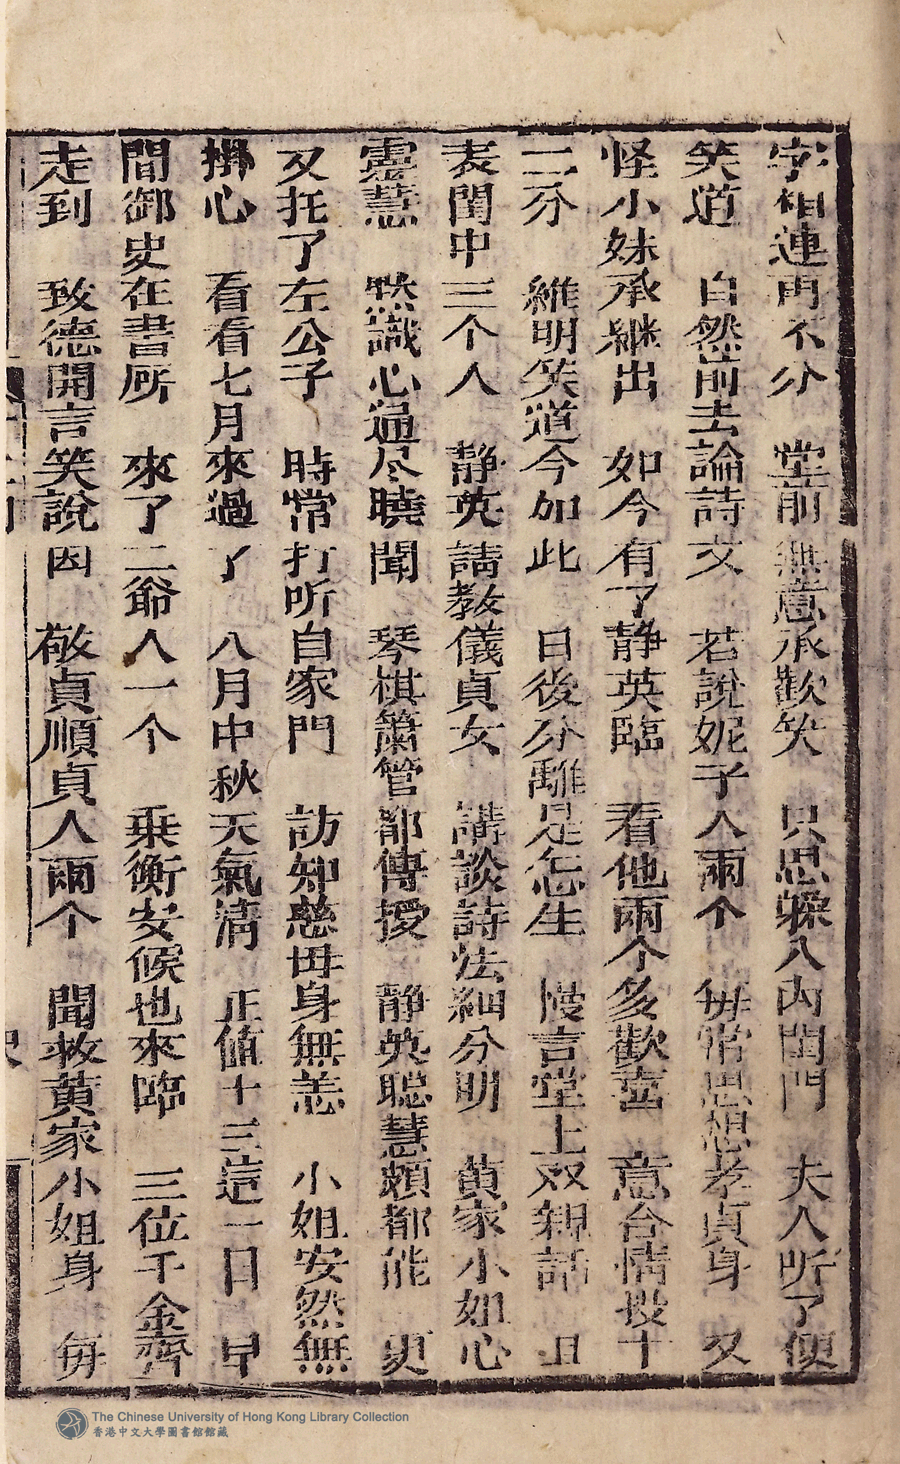 字相連再不分 堂前無意承歡笑 只思躲入內閨門 夫人听了便
笑道 自然前去論詩文 若說妮子人兩个 每常思想孝貞身 又
怪小妹承継出 如今有了静英臨 看他兩个多歡喜 意合情投十
二分 維明笑道今如此 日後分離是怎生 慢言堂上双親話 且
表閨中三个人 静英請教儀貞女 講談詩法細分明 黄家小姐心
靈慧 黙識心通尽曉聞 琴棋簫管都傳授 静英聡慧頗都能 更
又托了左公子 時常打听自家門 訪知慈母身無恙 小姐安然無
掛心 看看七月來過了 八月中秋天氣清 正値十三這一日 早
間御史在書房 來了二爺人一个 乗衡安候也來臨 三位千金齊
走到 致德開言笑說因 敬貞順貞人兩个 聞救黄家小姐身 毎
The Chinese University of Hong Kong Library Collection
香港中文大學圖書館館藏